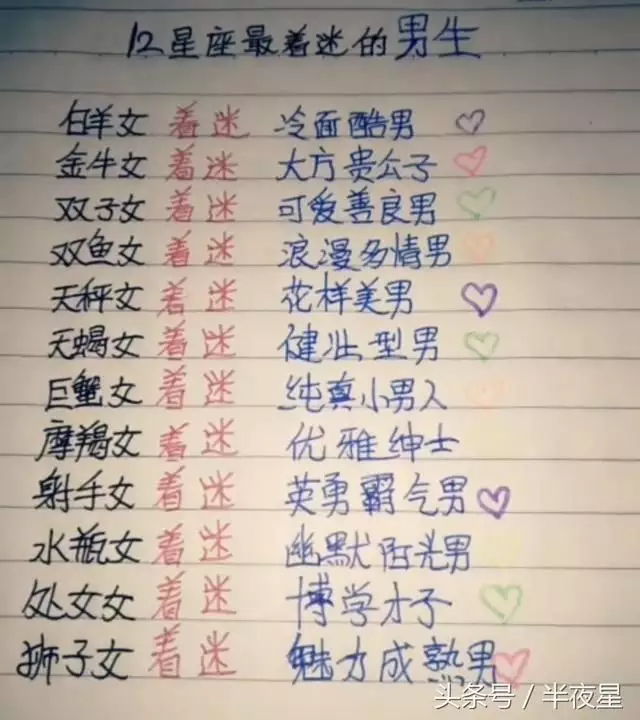 12星座最着迷的男生
白羊女 着迷 冷面酷男
金牛女 着迷 大方贵公子
双子女 着迷 可爱善良男
双鱼女 着迷 浪漫多情男
天秤女 着迷 花样美男
天蝎女 着迷 健壮型男
巨蟹女 着迷 纯真小男人
摩羯女 着迷 优雅绅士
射手女 着迷 英勇霸气男
水瓶女 着迷 幽默阳光男
处女女 着迷 博学才子
狮子女 着迷 魅力成熟男
头条号 / 半夜星